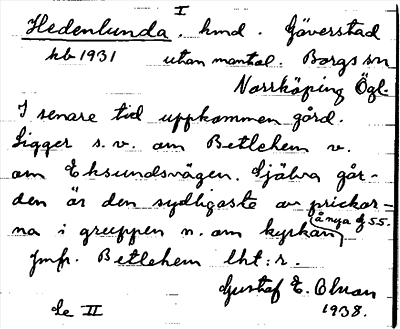 I
Hedenlunda, hmd. Göverstad
kb 1931 utan mantal. Borgs sn
Norrköping Ögl.
I senare tid uppkommen gård.
Ligger s.v. om Betlehem v.
om Eksundsvägen. Själva går-
den är den sydligaste av prickar-
(å nya bj 55.
na i gruppen n. om kyrkan)
Jmfr. Betlehem lht:r.
Gustaf E. Olson
Se II 1938.